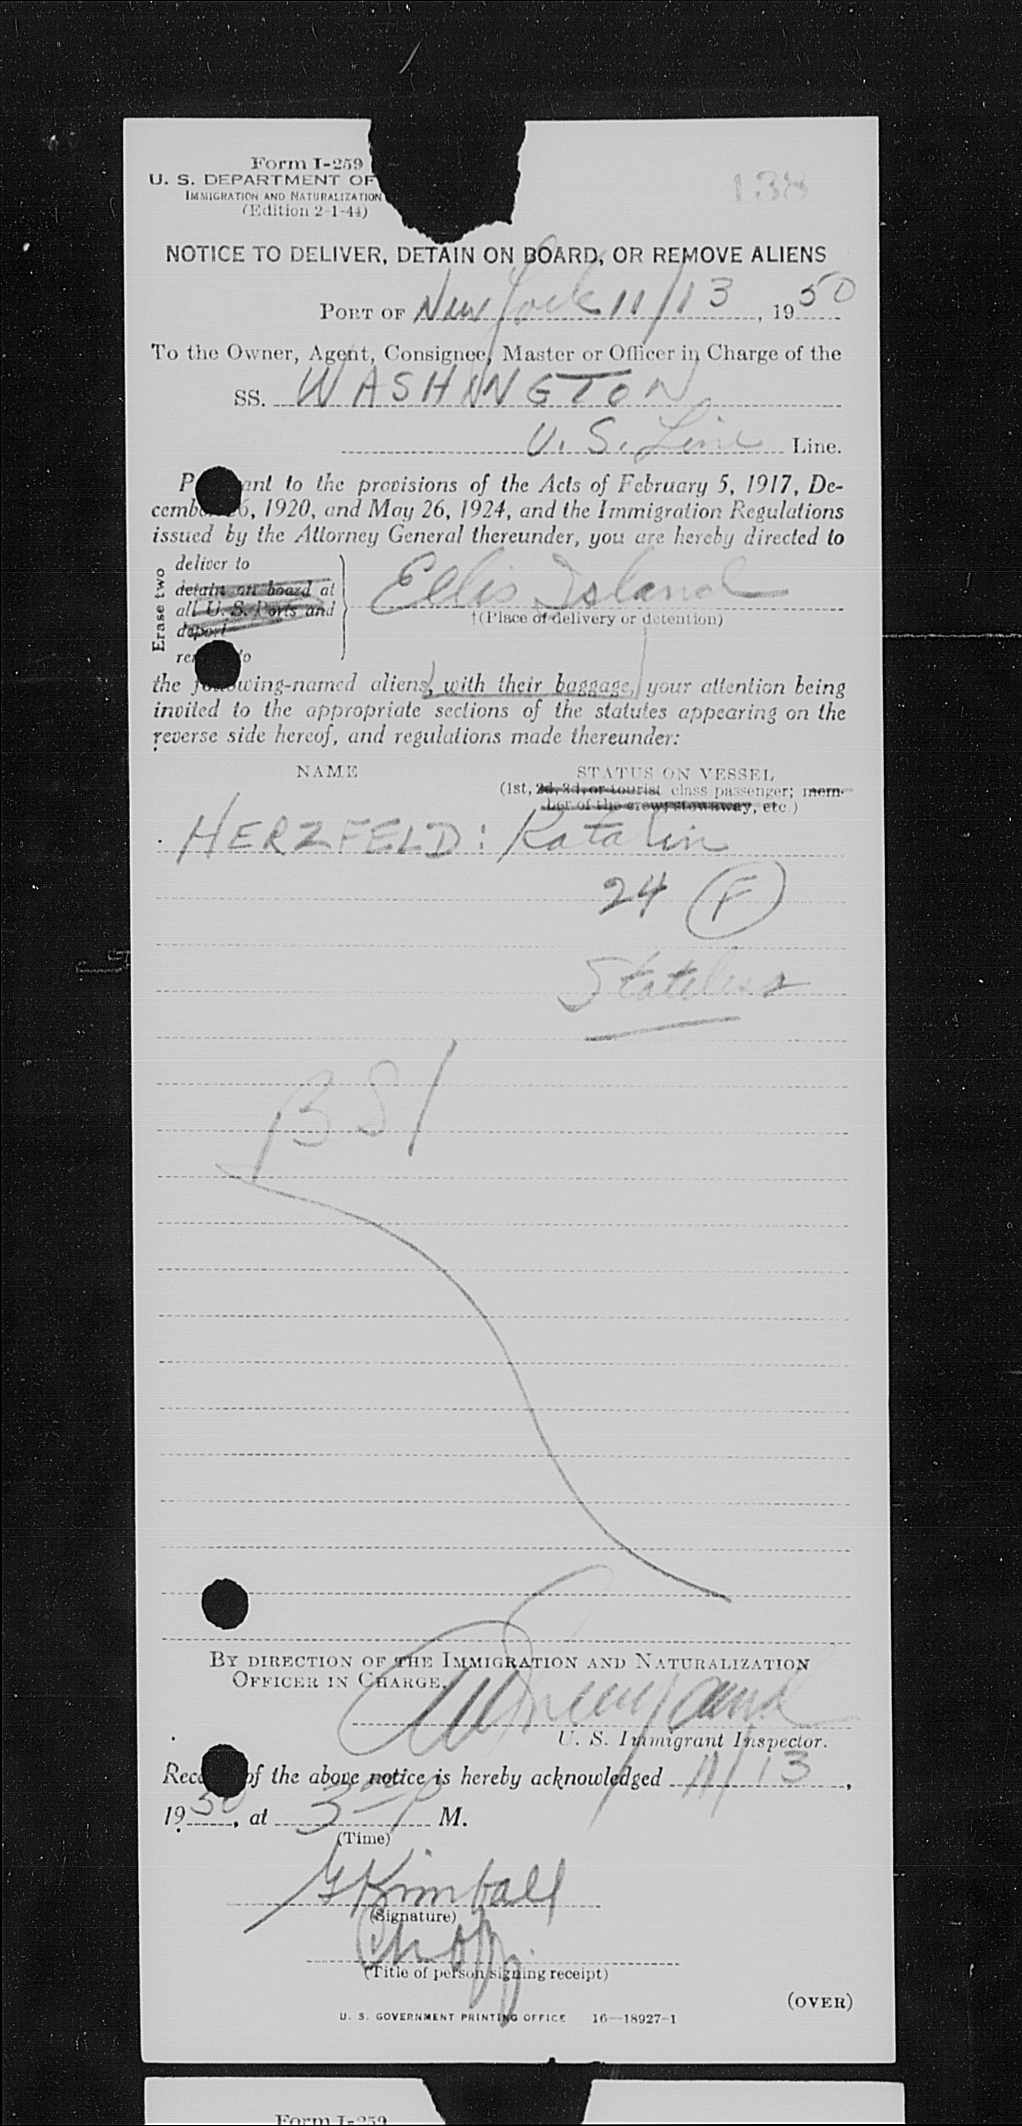 Form I-259
U. S. DEPARTMENT OF
IMMIGRATION AND NATURALIZATION
(Edition 2-1-44)
138
NOTICE TO DELIVER, DETAIN ON BOARD, OR REMOVE ALIENS
PORT OF New York 11/13, 1950
To the Owner, Agent, Consignee, Master or Officer in Charge of the
SS. WASHINGTON
U. S. Line Line.
P ant to the provisions of the Acts of February 5, 1917, De-
cemb 6, 1920, and May 26, 1924, and the Immigration Regulations
issued by the Attorney General thereunder, you are hereby directed to
Erase two
deliver to
detain on board at
all U. S. Ports and
deport
re to
Ellis Island
(Place of delivery or detention)
the following-named aliens, with their baggage, your attention being
invited to the appropriate sections of the statutes appearing on the
reverse side hereof, and regulations made thereunder:
NAME STATUS ON VESSEL
(1st, 2d, 3d, or tourist class passenger; mem-
ber of the crew, stowaway, etc.)
HERZFELD: Katalin
24 F
Stateless
BSI
BY DIRECTION OF THE IMMIGRATION AND NATURALIZATION
OFFICER IN CHARGE.
U. S. Immigrant Inspector.
Rece of the above notice is hereby acknowledged 11/13,
1950, at 3 P M.
(Time)
G Kimball
(Signature)
Ch Off.
(Title of person signing receipt)
(OVER)
U. S. GOVERNMENT PRINTING OFFICE 16—18927-1
Form I-259